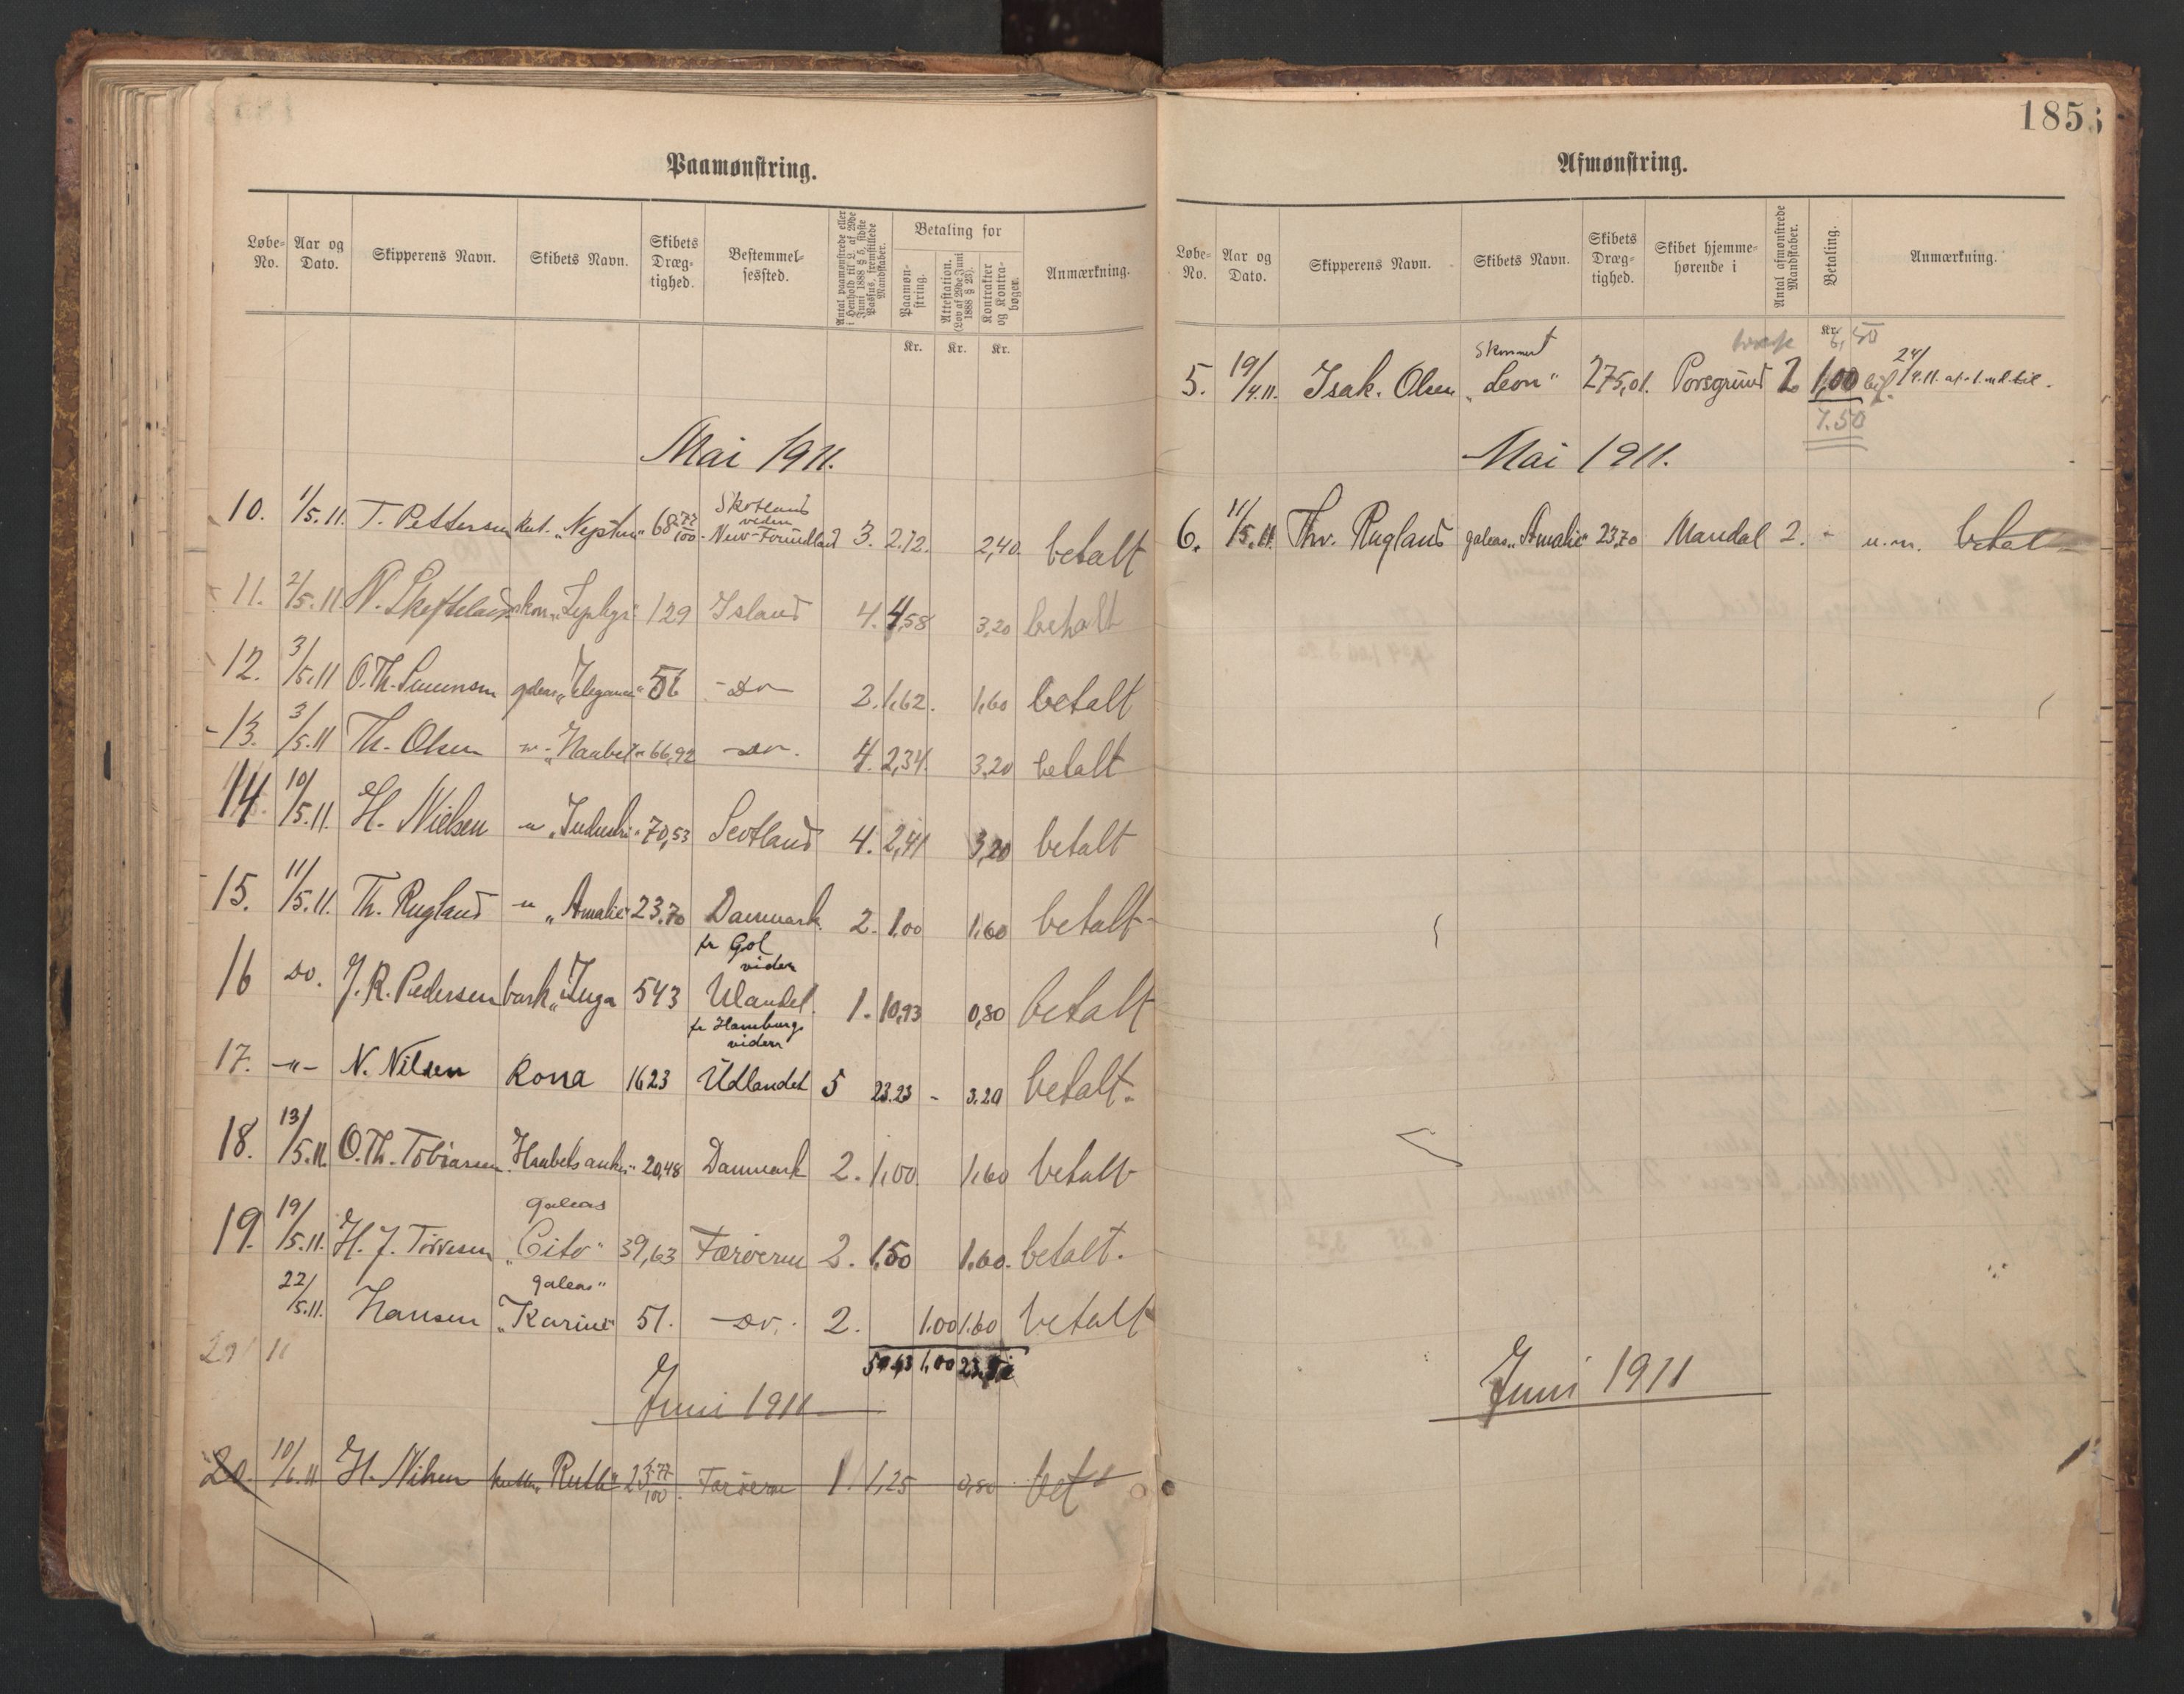 Paamønstring.
Løbe-No. Aar og Dato. Skipperens Navn. Skibets Navn. Skibets Dræg-tighed. Bestemmel-sessted. Antal paamønstrede eller i Henhold til L. af 29de Juni 1888 § 5, sidste Passus, fremstillede Mandskaber. Betaling for Paamøn-string. Attestation. (Lov af 29de Juni 1888 § 23). Kontrakter og Kontra-bøger. Anmærkning.
Kr. Kr. Kr.
Mai 1911.
10. 1/5.11. T. Pettersen kut. "Neptun" 68 77/100 Skotland viden New-Foundland 3. 2,12. 2,40. betalt
11. 2/5.11 N. skon. "Zephyr" 129 Island 4. 4,58 3,20 betalt
12. 3/5.11 O. Th. galeas "Elegance" 56 - Do - 2. 1,62. 1,60 betalt
13. 3/5.11 Th. Olsen "Haabet" 66,92 - Do - 4. 2,34. 3,20 betalt
14. 10/5.11. H. Nielsen " "Industri" 70,53 Scotland 4. 2,41 3,20 betalt
15. 11/5.11. Th. Rugland " "Amalie" 23.70 Danmark 2. 1.00 1.60 betalt
16 Do. J. R. Pedersen bark "Inga 543 fr Gol viden Utlandet. 1. 10,93 0,80 betalt
17. -"- N. Nilsen Rona 1623 fr Hamburg viden Udlandet 5 23.23 - 3.20 betalt.
18. 13/5.11. O. Th. Tobiassen "Haabets anker" 20,48 Danmark 2. 1,00. 1,60 betalt
19. 19/5.11. H. J. galeas "Cito" 39,63 Færøerne 2. 1.50 1.60. betalt.
22/5.11. Hansen galeas "Karine" 51. - Do. 2. 1.00 1.60 betalt
1,00
Juni 1911
20. 10/6.11 H. Nilsen "Ruth" Færøerne 1 1,25 0,80 bet
1853
Afmønstring.
Løbe-No. Aar og Dato. Skipperens Navn. Skibets Navn. Skibets Dræg-tighed. Skibet hjemme-hørende i Antal afmønstrede Mandskaber. Betaling. Anmærkning.
Kr. 6,50
5. 19/4.11. Isak. Olsen Skonnert "Leon" 275,01. Porsgrund 2 1,00 24/4.11.
7.50
Mai 1911.
6. 11/5.11. Thv. Rugland galeas "Amalie" 23,70 Mandal 2. - u.m. betal
Juni 1911